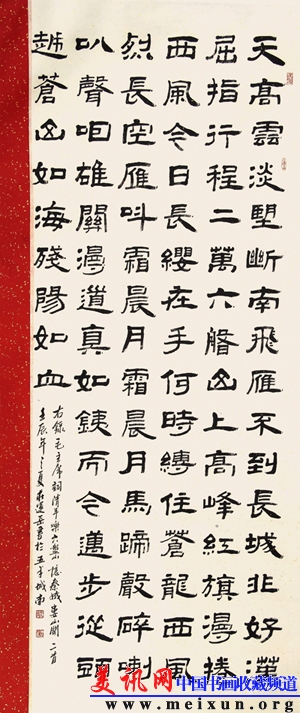 天高雲淡望斷南飛雁不到長城非好漢
屈指行程二萬六盤山上高峰紅旗漫捲
西風今日長纓在手何時縛住蒼龍西風
烈長空雁叫霜晨月霜晨月馬蹄聲碎喇
叭聲咽雄關漫道真如鐵而今邁步從頭
越蒼山如海殘陽如血
右錄毛主席詞清平樂六盤山憶秦娥婁山關二首
壬辰年之夏書於五羊城南
美讯网 中国书画收藏频道
www.meixun.net